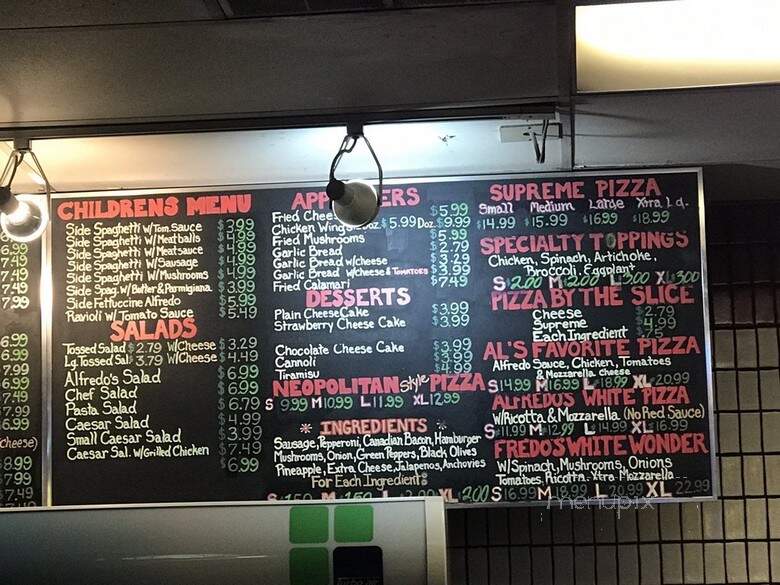 6.99
7.49
7.49
7.49
7.99
6.99
6.99
7.99
6.99
6.99
7.99
6.99
Cheese)
8.99
7.99
7.49
7.49
CHILDRENS MENU
Side Spaghetti W/Tom.Sauce $3.99
Side Spaghetti W/Meatballs $4.99
Side Spaghetti W/Meatsauce $4.99
Side Spaghetti W/Sausage $4.99
Side Spaghetti W/Mushrooms $4.99
Side Spag. W/Butter&Parmigiana $3.99
Side Fettuccine Alfredo $5.99
Ravioli W/ Tomato Sauce $5.49
SALADS
Tossed Salad $2.79 W/Cheese $3.29
Lg.Tossed Sal. 3.79 W/Cheese $4.49
Alfredo's Salad $6.99
Chef Salad $6.99
Pasta Salad $6.79
Caesar Salad $4.99
Small Caesar Salad $3.99
Caesar Sal. W/Grilled Chicken $7.49
$6.99
Fried $5.99
Chicken Wings $5.99 Doz. $9.99
Fried Mushrooms $5.99
Garlic Bread $2.79
Garlic Bread w/cheese $3.29
Garlic Bread w/cheese & TOMATOES $3.99
Fried Calamari $7.49
DESSERTS
Plain CheeseCake $3.99
Strawberry Cheese Cake $3.99
Chocolate Cheese Cake $3.99
Cannoli
Tramisu $4.99
NEOPOLITAN Style PIZZA
S 9.99 M 10.99 L 11.99 XL 12.99
* INGREDIENTS *
Sausage, Pepperoni, Canadian Bacon, Hamburger
Mushrooms, Onion, Green Peppers, Black Olives
Pineapple, Extra Cheese, Jalapenos, Anchovies
For Each Ingredient:
S 1.50 M 1.50 L 2.00 XL 2.00
SUPREME PIZZA
Small Medium Large Xtra Lg.
$14.99 $15.99 $16.99 $18.99
SPECIALTY TOPPINGS
Chicken, Spinach, Artichoke,
Broccoli, Eggplant
S 2.00 M 2.00 L 3.00 XL 3.00
PIZZA BY THE SLICE
Cheese $2.79
Supreme $4.99
Each Ingredient
AL'S FAVORITE PIZZA
Alfredo Sauce, Chicken, Tomatoes
& Mozzarella Cheese
S 14.99 M 16.99 L 18.99 XL 20.99
ALFREDOS WHITE PIZZA
W/Ricotta & Mozzarella (No Red Sauce)
S 11.99 M 12.99 L 14.99 XL 16.99
FREDO'S WHITE WONDER
W/Spinach, Mushrooms, Onions
Tomatoes, Ricotta, Xtra Mozzarella
S 16.99 M 18.99 L 20.99 XL 22.99
menupix